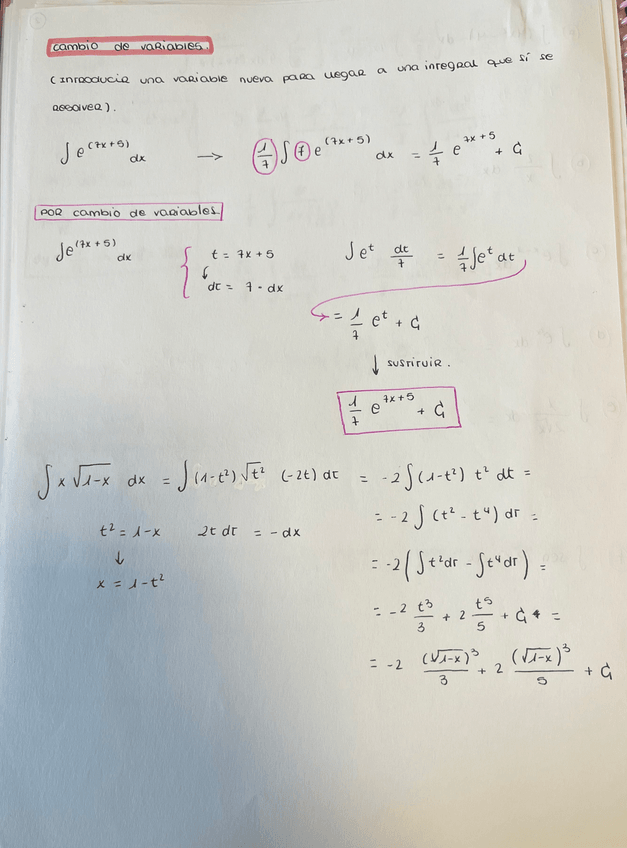 cambio de variables.
(Introducir una variable nueva para llegar a una integral que sí se
resolver).
∫e^(7x+5) dx → (1/7) ∫ (7) e^(7x+5) dx = 1/7 e^7x+5 + C
POR cambio de variables.
∫e^(7x+5) dx { t = 7x+5 ∫e^t dt/7 = 1/7 ∫e^t dt
↓
dt = 7·dx
= 1/7 e^t + C
↓ sustituir.
1/7 e^7x+5 + C
∫x√1-x dx = ∫(1-t²)√t² (-2t) dt = -2∫(1-t²) t² dt =
t² = 1-x 2t dt = -dx = -2∫(t² - t⁴) dt =
↓
x = 1-t² = -2(∫t²dt - ∫t⁴dt) =
= -2 t³/3 + 2 t⁵/5 + C =
= -2 (√1-x)³/3 + 2 (√1-x)³/5 + C